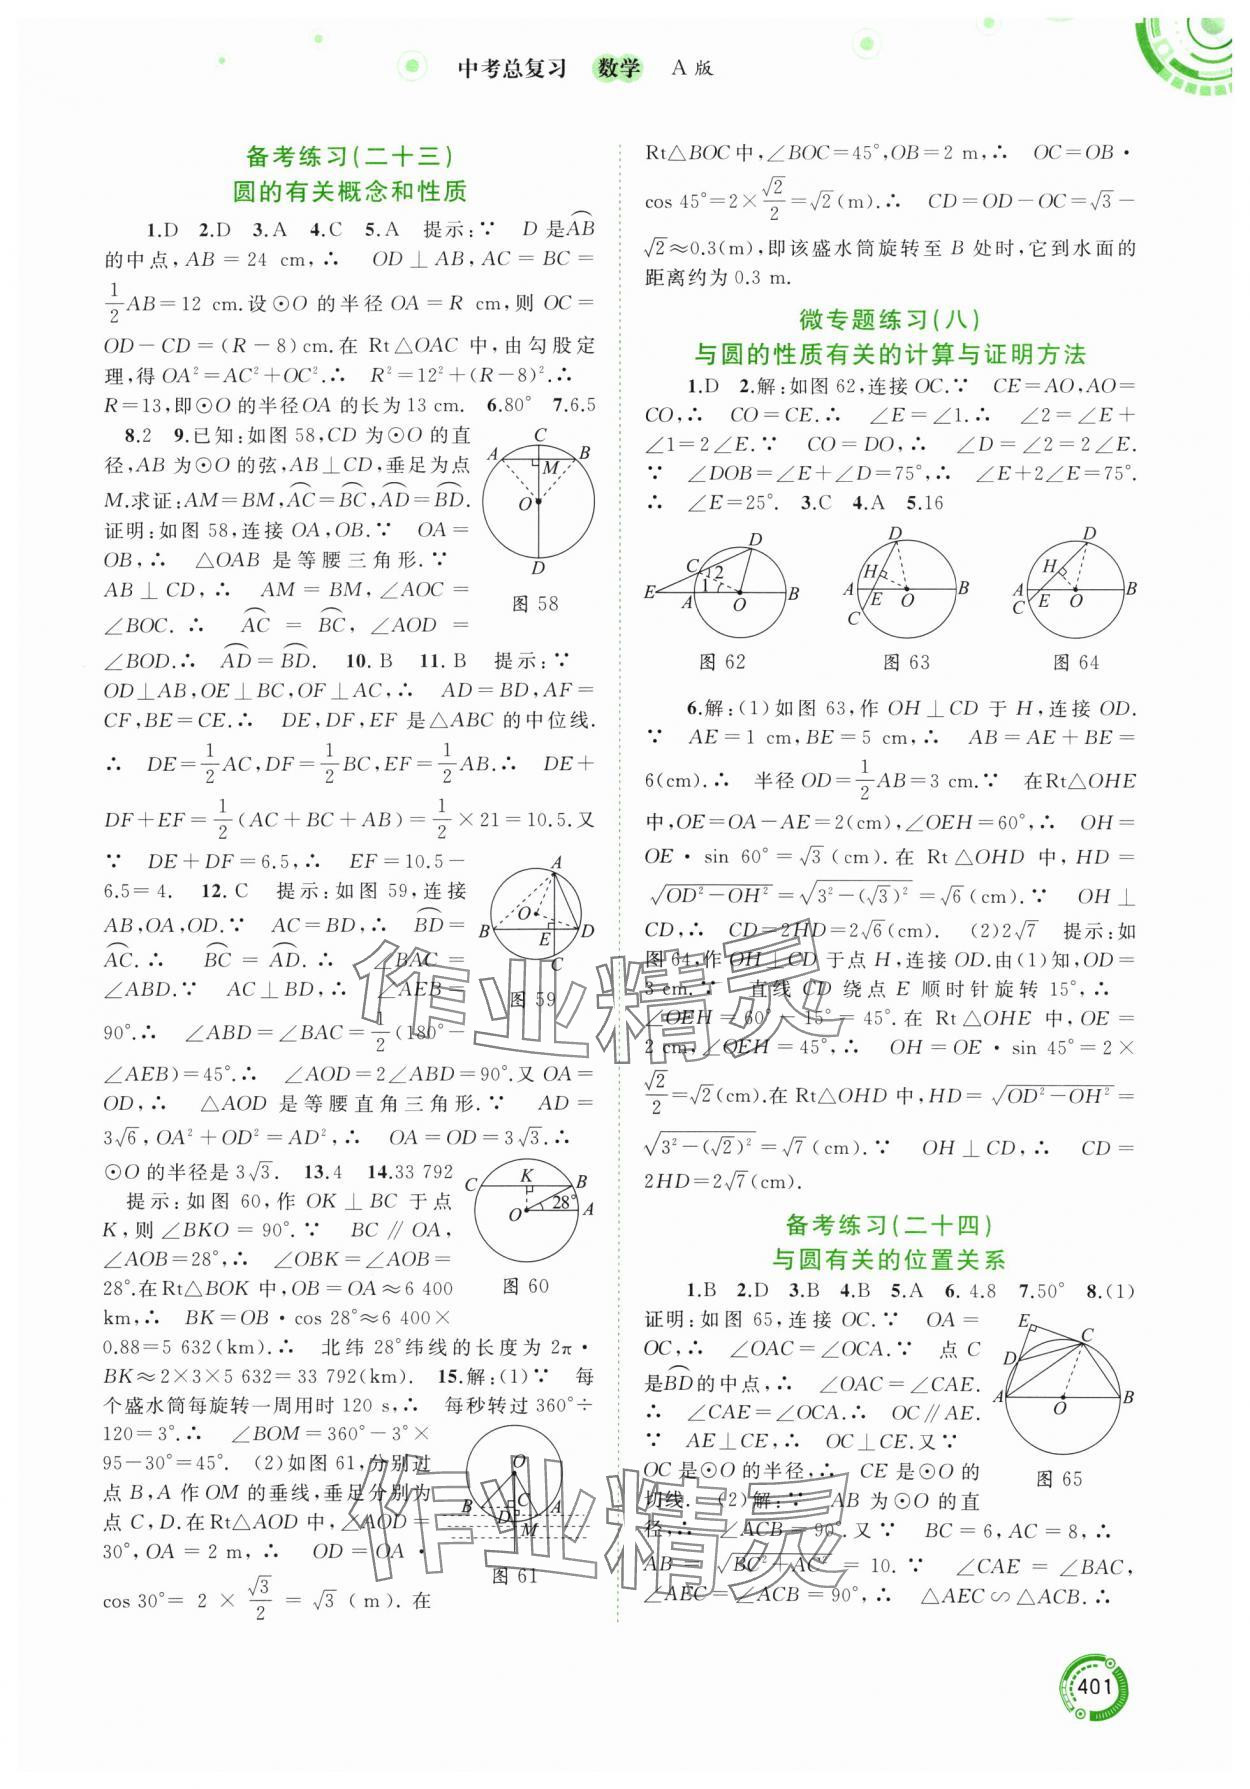 中考总复习 数学 A 版
备考练习(二十三)
圆的有关概念和性质
1.D 2.D 3.A 4.C 5.A 提示:∵ D 是AB
的中点,AB=24 cm,∴ OD⊥AB,AC=BC=
1/2 AB=12 cm.设⊙O 的半径 OA=R cm,则 OC=
OD-CD=(R-8)cm.在 Rt△OAC 中,由勾股定
理,得OA²=AC²+OC².∴ R²=12²+(R-8)².∴
R=13,即⊙O 的半径OA 的长为13 cm. 6.80° 7.6.5
8.2 9.已知:如图 58,CD 为⊙O 的直
径,AB 为⊙O 的弦,AB⊥CD,垂足为点
M.求证:AM=BM,AC=BC,AD=BD.
证明:如图 58,连接 OA,OB.∵ OA=
OB,∴ △OAB 是等腰三角形.∵
AB⊥CD,∴ AM=BM,∠AOC=
∠BOC.∴ AC=BC,∠AOD=
∠BOD.∴ AD=BD. 10.B 11.B 提示:∵
C
A
M
B
O
D
图 58
OD⊥AB,OE⊥BC,OF⊥AC,∴ AD=BD,AF=
CF,BE=CE.∴ DE,DF,EF 是△ABC 的中位线.
∴ DE=1/2 AC,DF=1/2 BC,EF=1/2 AB.∴ DE+
DF+EF=1/2(AC+BC+AB)=1/2×21=10.5.又
∵ DE+DF=6.5,∴ EF=10.5-
6.5=4. 12.C 提示:如图 59,连接
AB,OA,OD.∵ AC=BD,∴ BD=
AC.∴ BC=AD.∴ ∠BAC=
∠ABD.∵ AC⊥BD,∴ ∠AEB=
90°.∴ ∠ABD=∠BAC=1/2(180°-
A
O
B
E
D
C
图 59
∠AEB)=45°.∴ ∠AOD=2∠ABD=90°.又 OA=
OD,∴ △AOD 是等腰直角三角形.∵ AD=
3√6,OA²+OD²=AD²,∴ OA=OD=3√3.∴
⊙O 的半径是 3√3. 13.4 14.33 792
提示:如图 60,作 OK⊥BC 于点
K,则∠BKO=90°.∵ BC∥OA,
∠AOB=28°,∴ ∠OBK=∠AOB=
28°.在Rt△BOK 中,OB=OA≈6 400
km,∴ BK=OB·cos 28°≈6 400×
C
K
B
O
28°
A
图 60
0.88=5 632(km).∴ 北纬 28°纬线的长度为 2π·
BK≈2×3×5 632=33 792(km). 15.解:(1)∵ 每
个盛水筒每旋转一周用时 120 s,∴ 每秒转过360°÷
120=3°.∴ ∠BOM=360°-3°×
95-30°=45°. (2)如图 61,分别过
点 B,A 作OM 的垂线,垂足分别为
点 C,D.在Rt△AOD 中,∠AOD=
30°,OA=2 m,∴ OD=OA·
cos 30°=2×√3/2=√3(m).在
O
B
C
D
A
M
图 61
Rt△BOC 中,∠BOC=45°,OB=2 m,∴ OC=OB·
cos 45°=2×√2/2=√2(m).∴ CD=OD-OC=√3-
√2≈0.3(m),即该盛水筒旋转至 B 处时,它到水面的
距离约为 0.3 m.
微专题练习(八)
与圆的性质有关的计算与证明方法
1.D 2.解:如图 62,连接 OC.∵ CE=AO,AO=
CO,∴ CO=CE.∴ ∠E=∠1.∴ ∠2=∠E+
∠1=2∠E.∵ CO=DO,∴ ∠D=∠2=2∠E.
∵ ∠DOB=∠E+∠D=75°,∴ ∠E+2∠E=75°.
∴ ∠E=25°. 3.C 4.A 5.16
D
C
2
E
1
A
O
B
图 62
D
H
A
E
O
B
C
图 63
D
H
A
C
E
O
B
图 64
6.解:(1)如图 63,作 OH⊥CD 于 H,连接 OD.
∵ AE=1 cm,BE=5 cm,∴ AB=AE+BE=
6(cm).∴ 半径 OD=1/2 AB=3 cm.∵ 在Rt△OHE
中,OE=OA-AE=2(cm),∠OEH=60°,∴ OH=
OE·sin 60°=√3(cm).在 Rt△OHD 中,HD=
√(OD²-OH²)=√(3²-(√3)²)=√6(cm).∵ OH⊥
CD,∴ CD=2HD=2√6(cm). (2)2√7 提示:如
图 64,作 OH⊥CD 于点 H,连接 OD.由(1)知,OD=
3 cm.∵ 直线 CD 绕点 E 顺时针旋转 15°,∴
∠OEH=60°-15°=45°.在 Rt△OHE 中,OE=
2 cm,∠OEH=45°,∴ OH=OE·sin 45°=2×
√2/2=√2(cm).在 Rt△OHD 中,HD=√(OD²-OH²)=
√(3²-(√2)²)=√7(cm).∵ OH⊥CD,∴ CD=
2HD=2√7(cm).
备考练习(二十四)
与圆有关的位置关系
1.B 2.D 3.B 4.B 5.A 6.4.8 7.50° 8.(1)
证明:如图 65,连接 OC.∵ OA=
OC,∴ ∠OAC=∠OCA.∵ 点 C
是BD的中点,∴ ∠OAC=∠CAE.
∴ ∠CAE=∠OCA.∴ OC∥AE.
∵ AE⊥CE,∴ OC⊥CE.又∵
OC 是⊙O 的半径,∴ CE 是⊙O 的
切线. (2)解:∵ AB 为⊙O 的直
径,∴ ∠ACB=90°.又∵ BC=6,AC=8,∴
AB=√(BC²+AC²)=10.∵ ∠CAE=∠BAC,
∠AEC=∠ACB=90°,∴ △AEC∽△ACB.∴
E
C
D
A
O
B
图 65
作业精灵
作业精灵
401